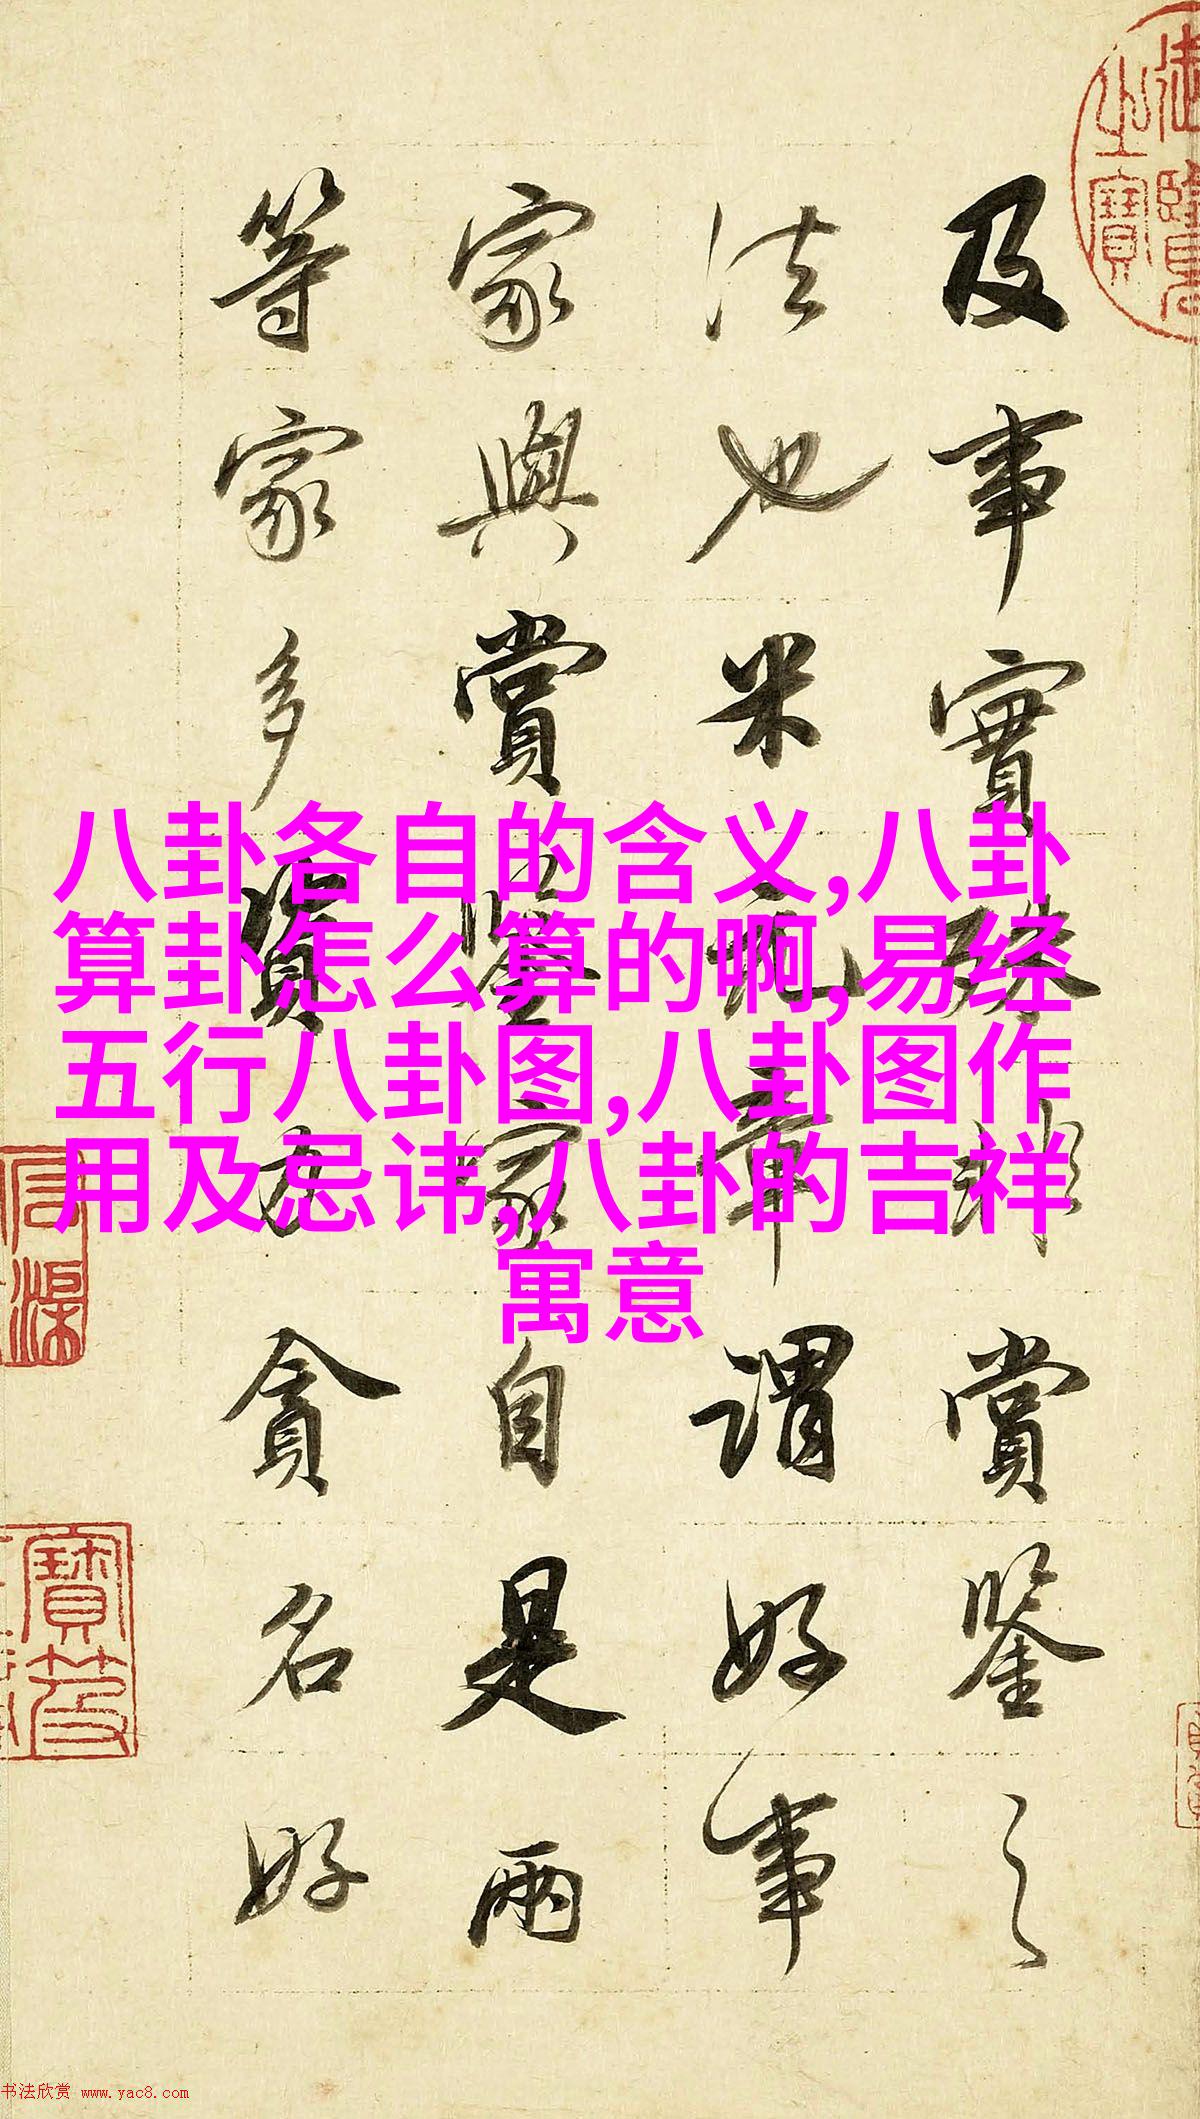 及事實殊非賞鑒之
法也米元章謂好事
家與賞鑒家自是兩
等家多資力貪名好
八卦各自的含义,八卦
算卦怎么算的啊,易经
五行八卦图,八卦图作
用及忌讳,八卦的吉祥
寓意
书法欣赏 www.yac8.com